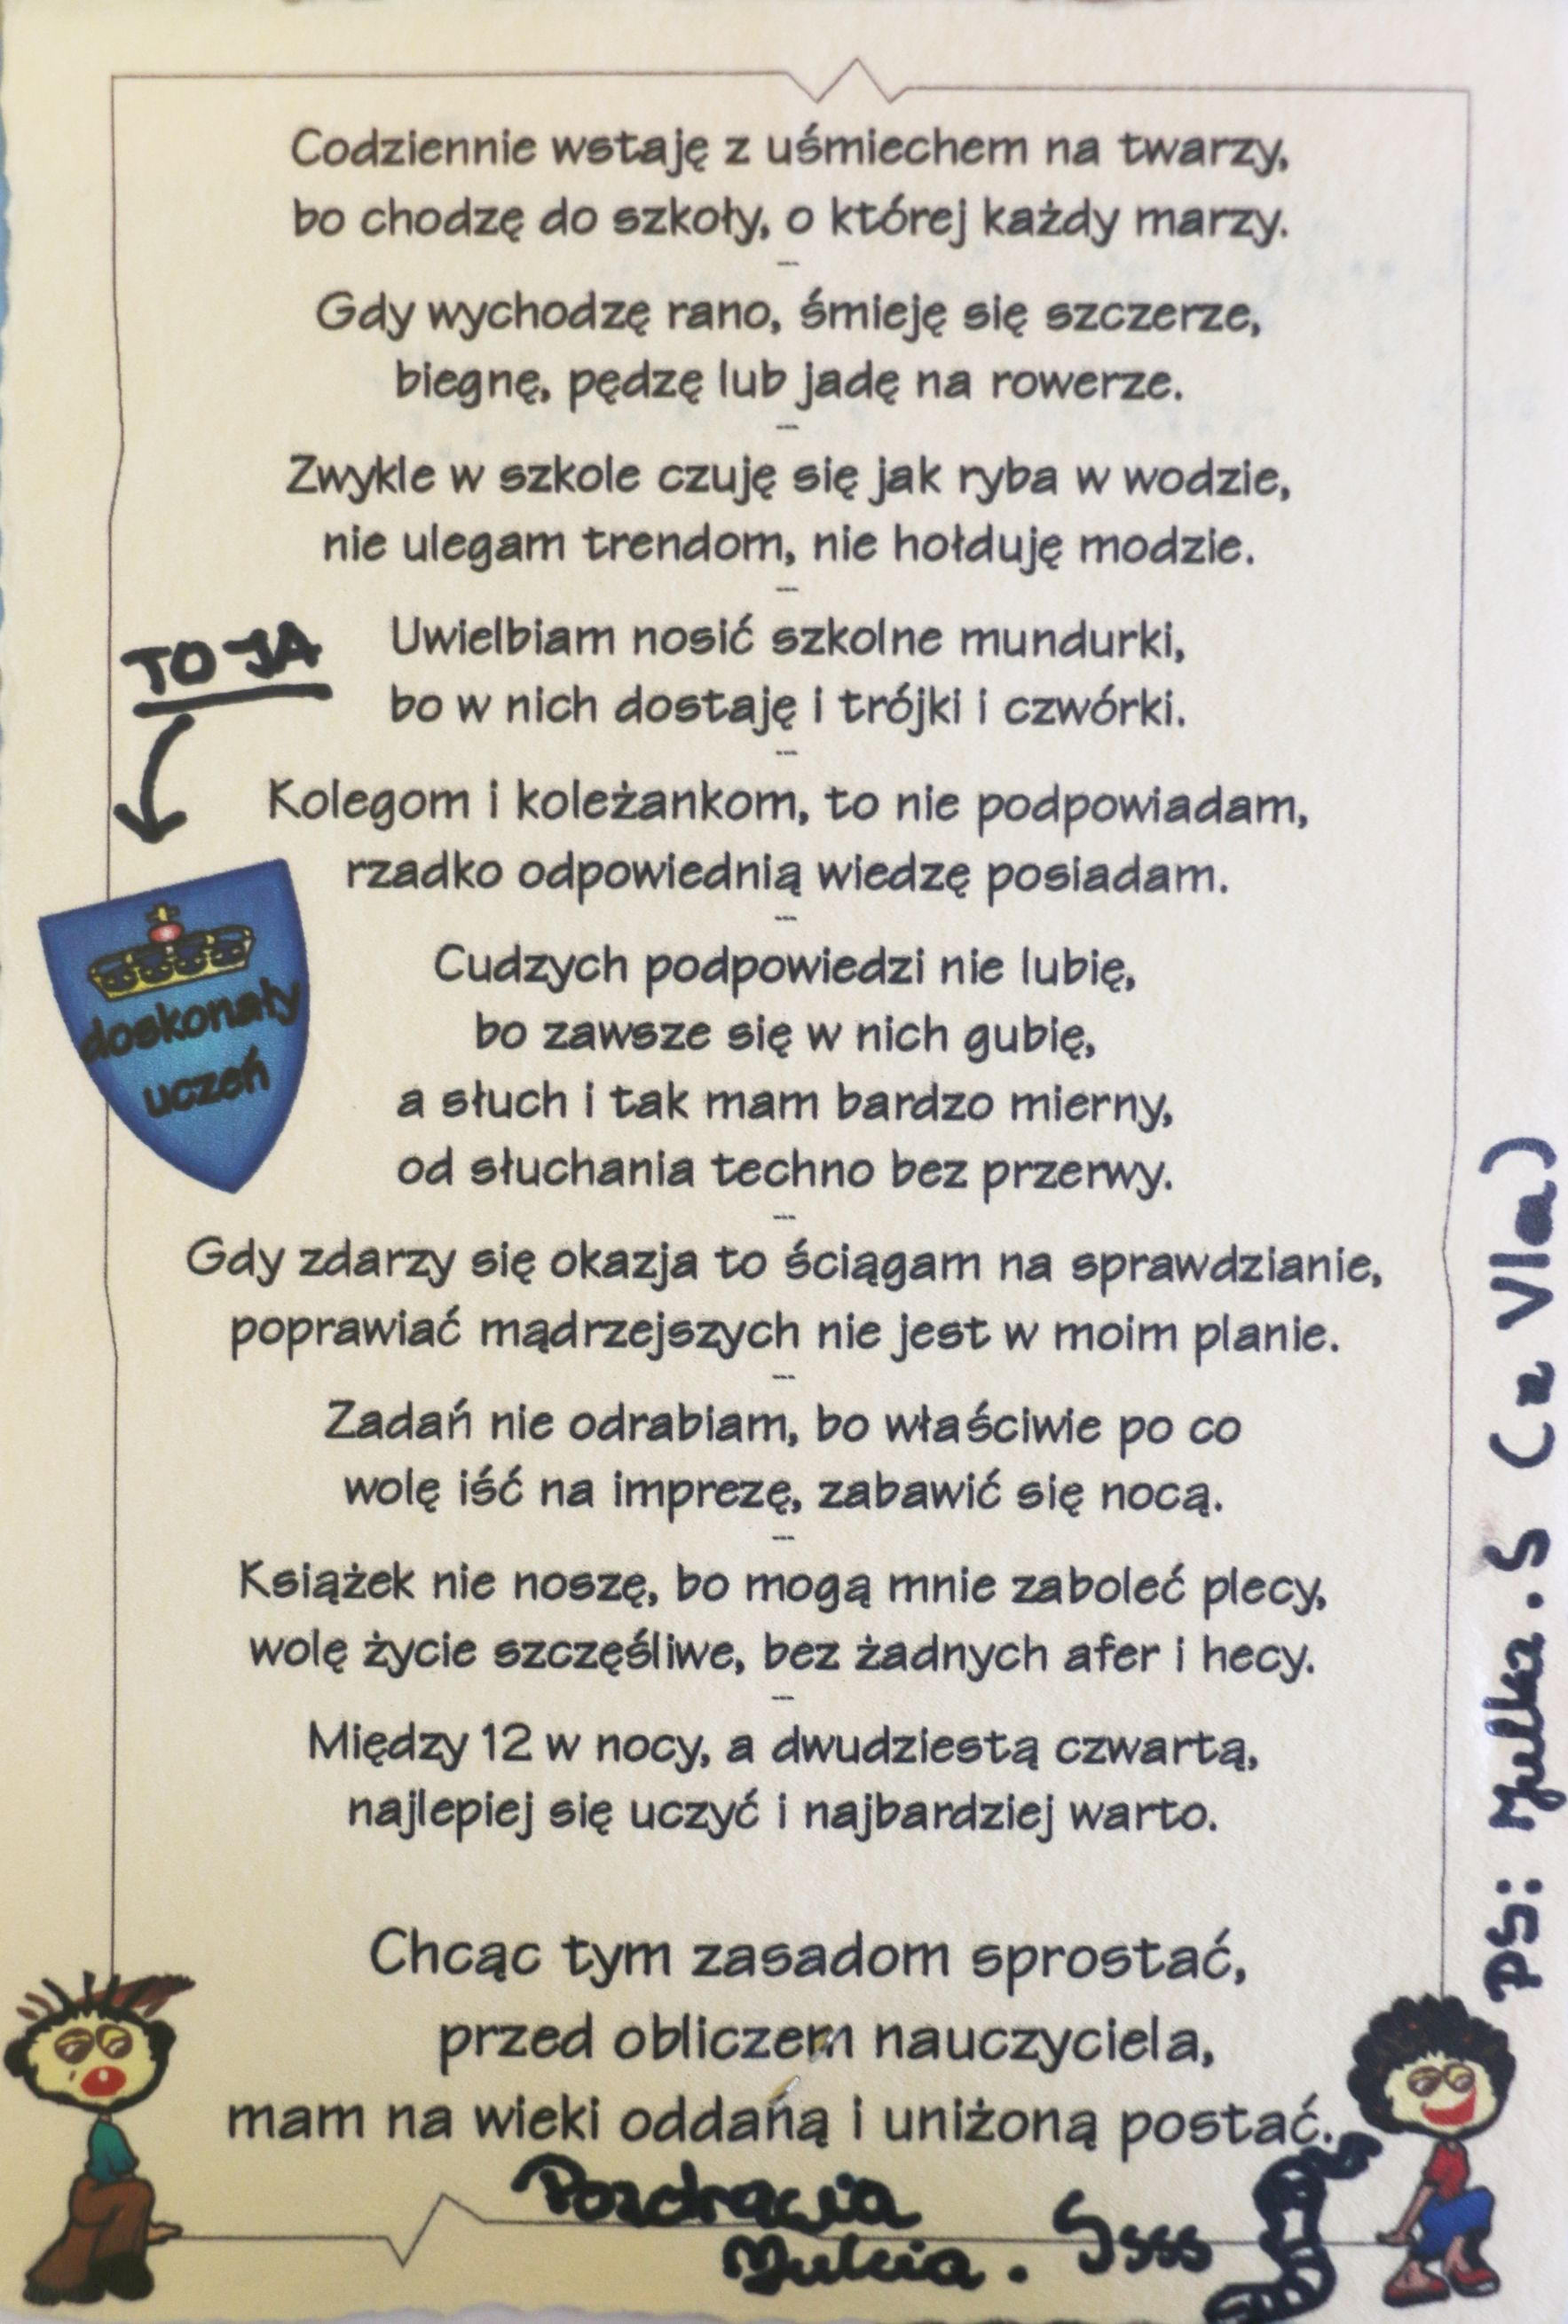 Codziennie wstaję z uśmiechem na twarzy,
bo chodzę do szkoły, o której każdy marzy.
---
Gdy wychodzę rano, śmieję się szczerze,
biegnę, pędzę lub jadę na rowerze.
---
Zwykle w szkole czuję się jak ryba w wodzie,
nie ulegam trendom, nie hołduję modzie.
---
Uwielbiam nosić szkolne mundurki,
bo w nich dostaję i trójki i czwórki.
---
TO JA
Kolegom i koleżankom, to nie podpowiadam,
rzadko odpowiednią wiedzę posiadam.
---
doskonały
uczeń
Cudzych podpowiedzi nie lubię,
bo zawsze się w nich gubię,
a słuch i tak mam bardzo mierny,
od słuchania techno bez przerwy.
---
Gdy zdarzy się okazja to ściągam na sprawdzianie,
poprawiać mądrzejszych nie jest w moim planie.
---
Zadań nie odrabiam, bo właściwie po co
wolę iść na imprezę, zabawić się nocą.
---
Książek nie noszę, bo mogą mnie zaboleć plecy,
wolę życie szczęśliwe, bez żadnych afer i hecy.
---
Między 12 w nocy, a dwudziestą czwartą,
najlepiej się uczyć i najbardziej warto.
Chcąc tym zasadom sprostać,
przed obliczem nauczyciela,
mam na wieki oddaną i uniżoną postać.
Pozdrawia
Julcia. Ssss
PS: Julka.S (z VIa)